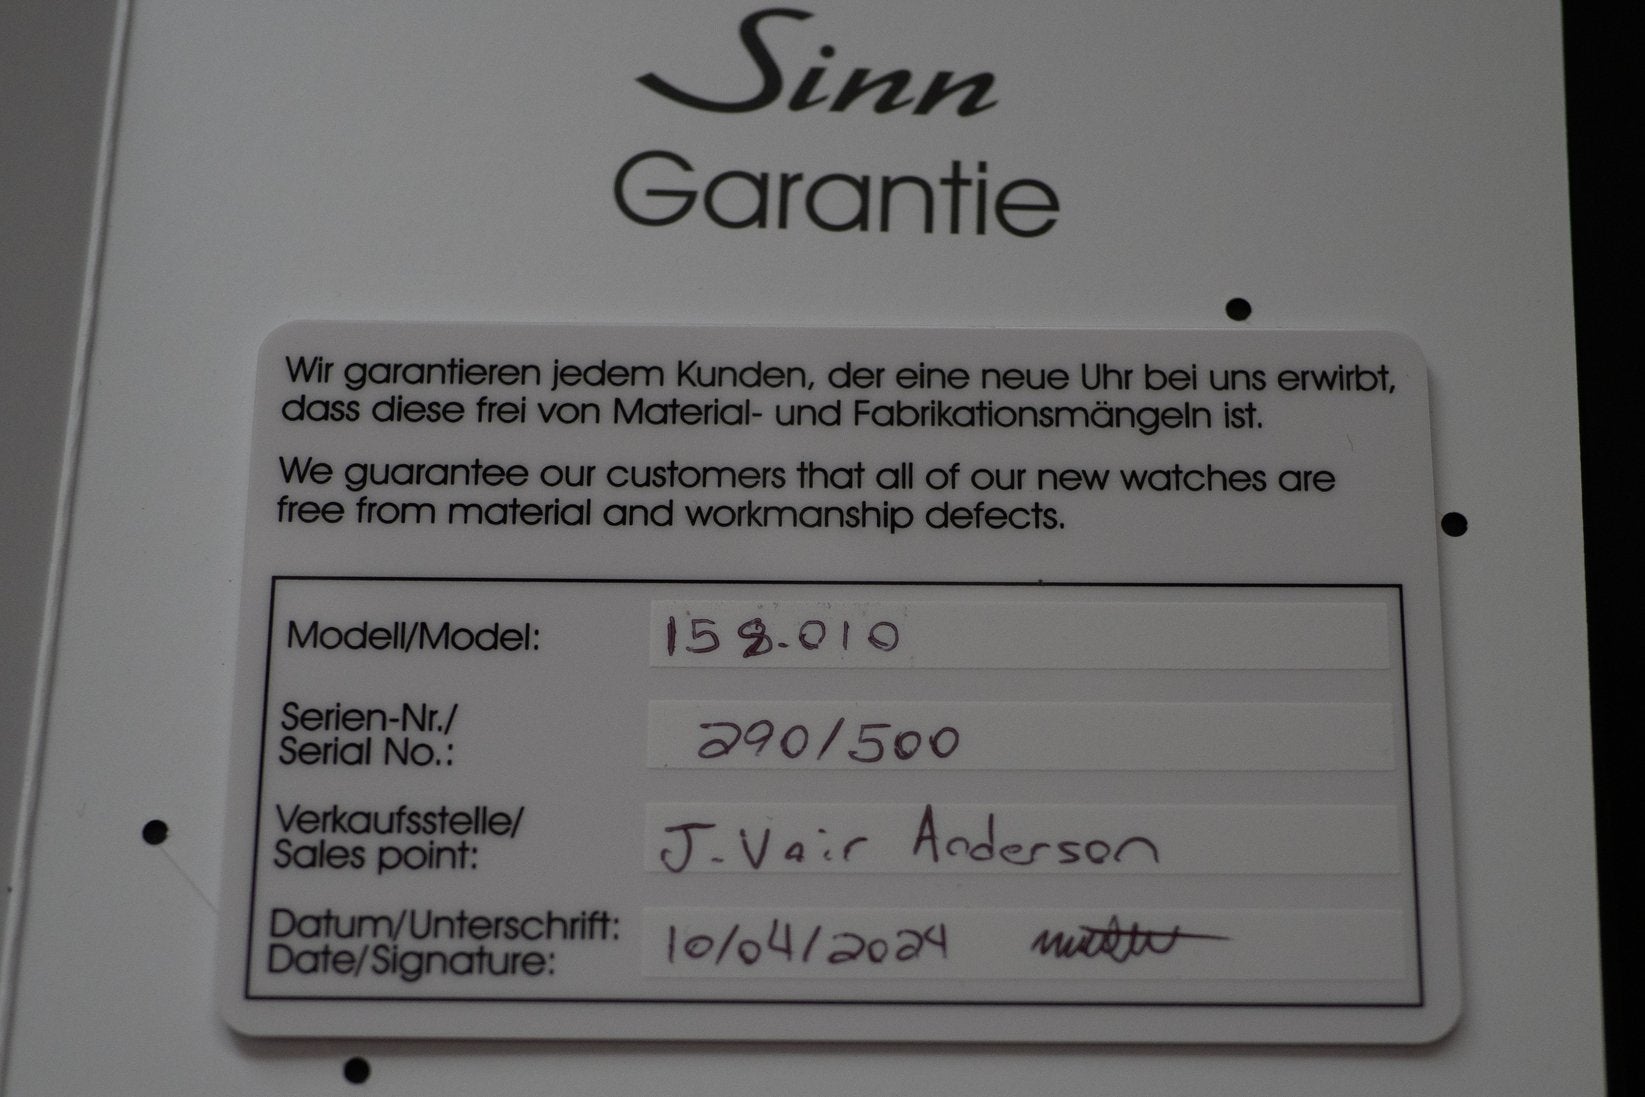 Sinn
Garantie
Wir garantieren jedem Kunden, der eine neue Uhr bei uns erwirbt,
dass diese frei von Material- und Fabrikationsmängeln ist.
We guarantee our customers that all of our new watches are
free from material and workmanship defects.
Modell/Model: 158.010
Serien-Nr./
Serial No.: 290/500
Verkaufsstelle/
Sales point: J. Vair Anderson
Datum/Unterschrift:
Date/Signature: 10/04/2024